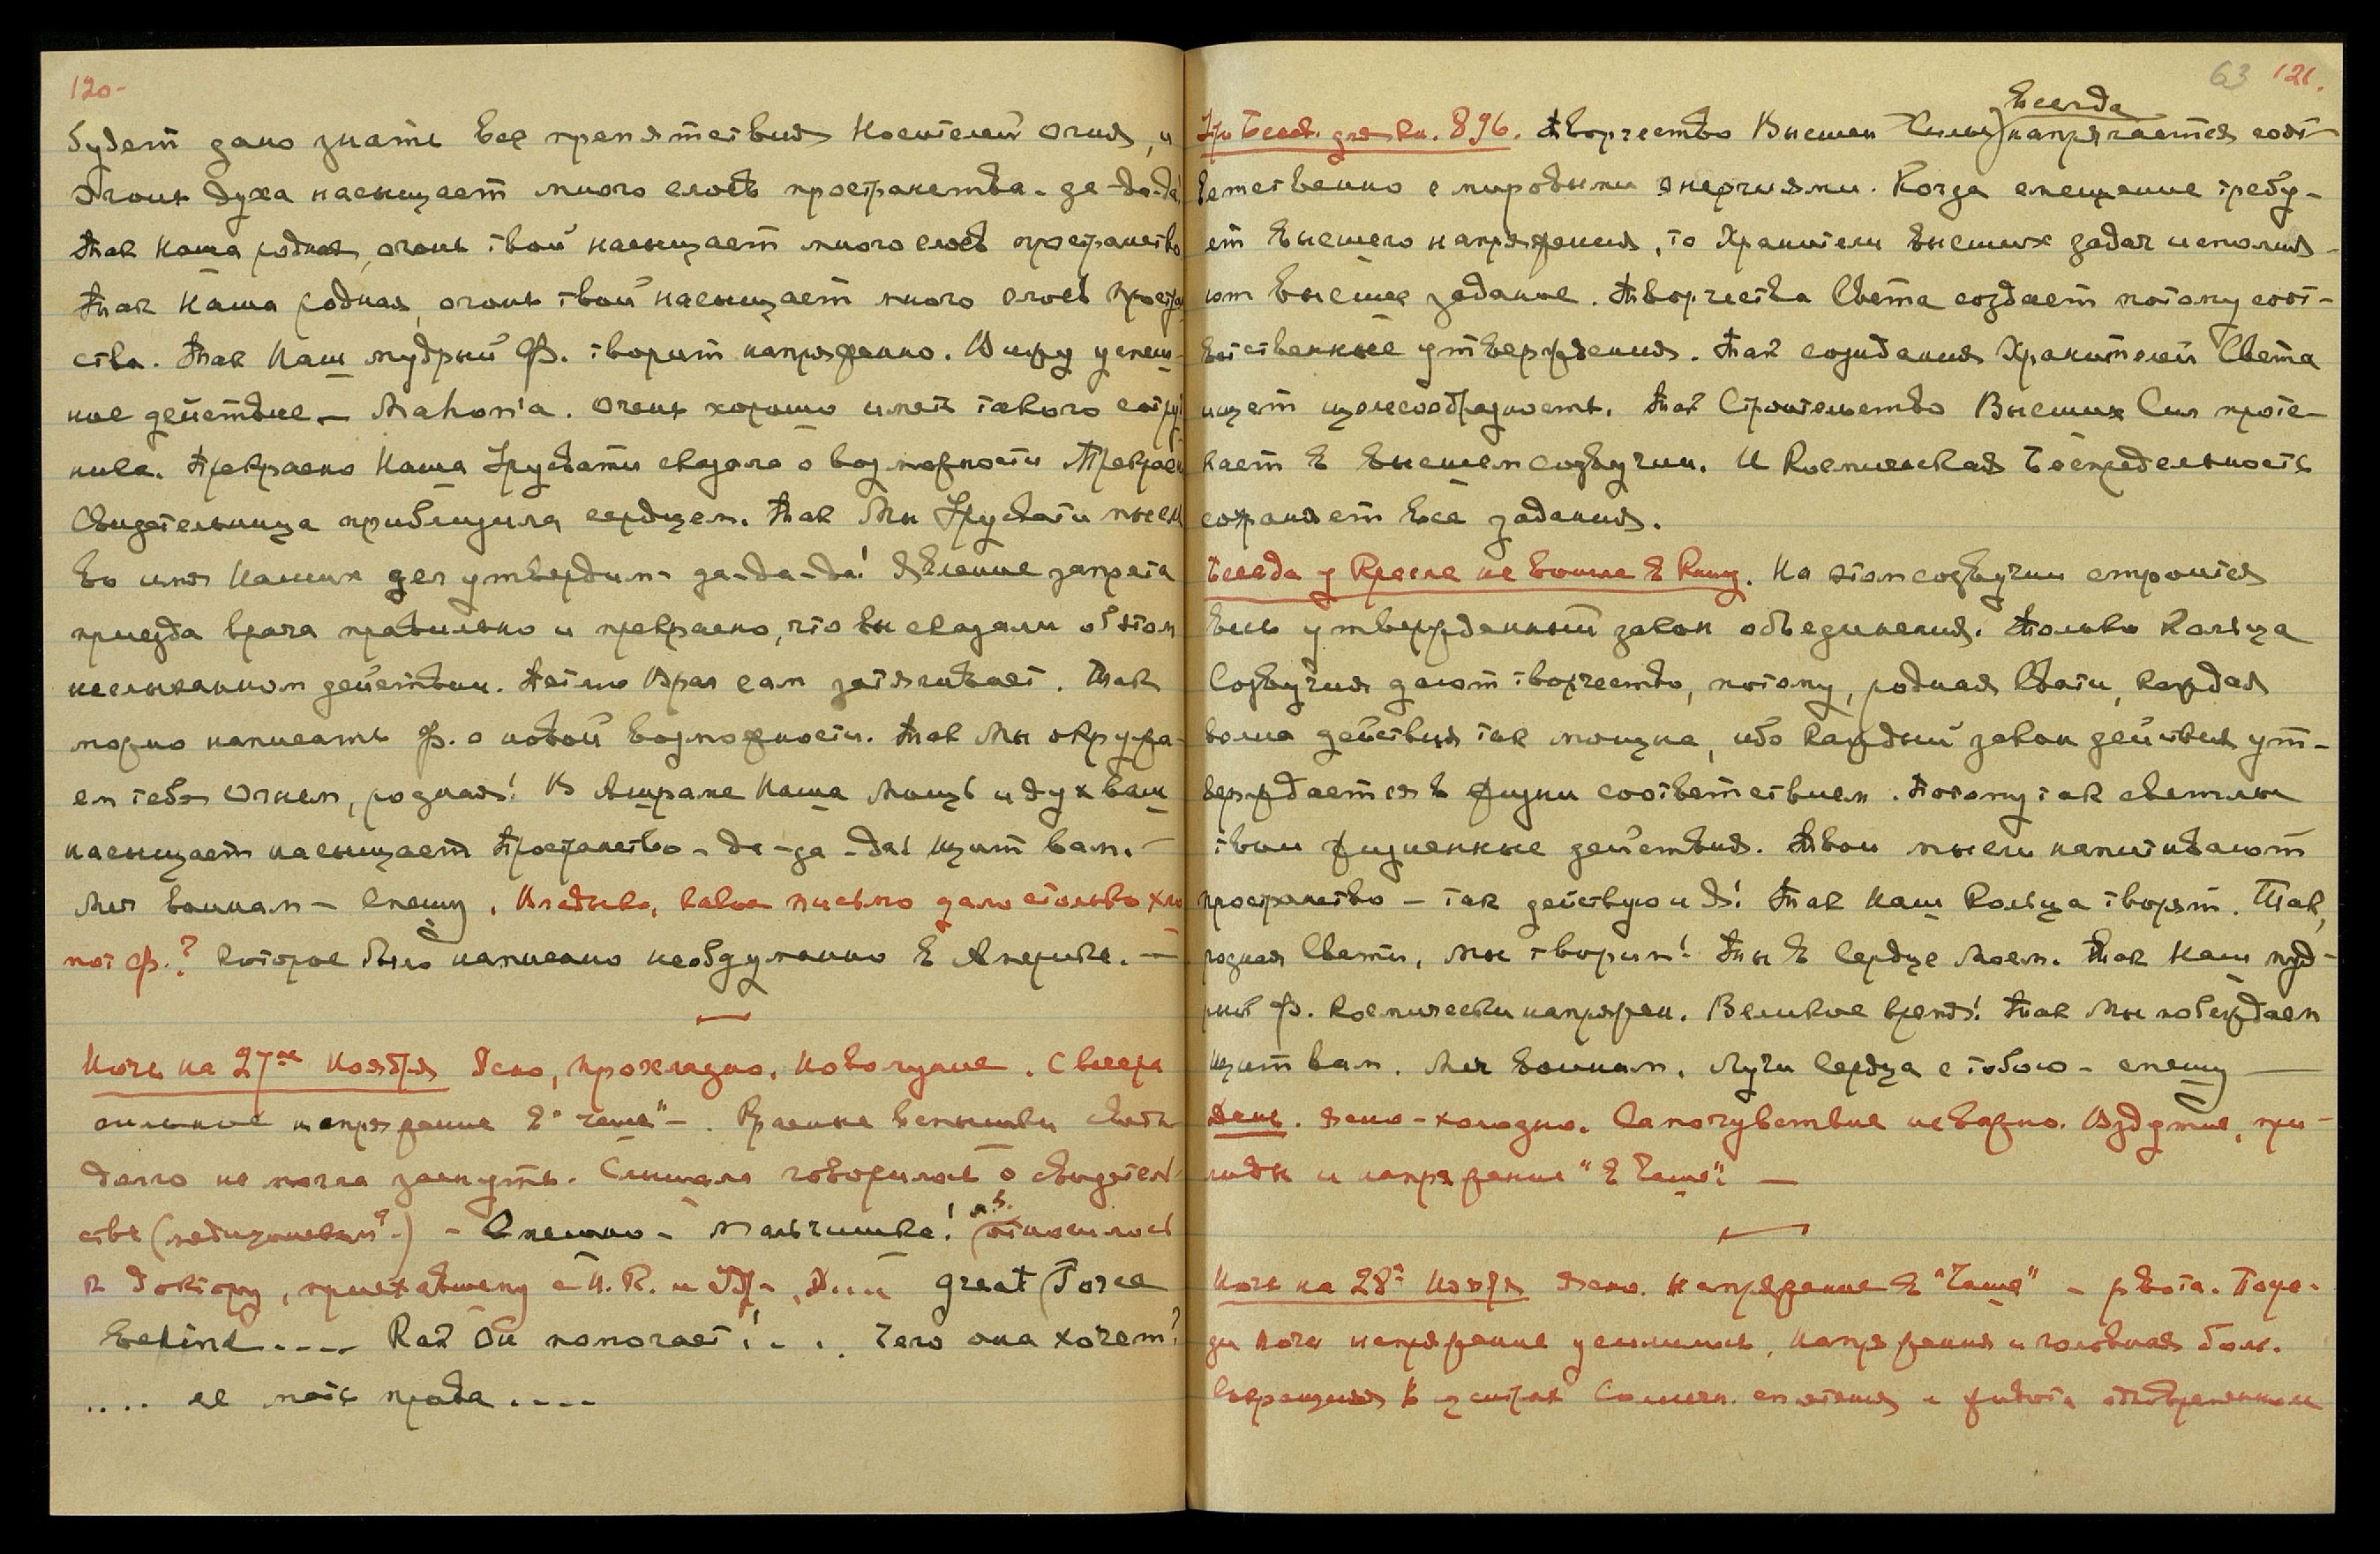 120-
будет дано знать все препятствия Носителей Огня, и
Огонь духа насыщает много слоев пространства - да-да-да!
Так Наша родная, огонь твой насыщает много слоев пространства
Так Наша родная, огонь твой насыщает много слоев простран
ства. Так Наш мудрый Ф. творит напряженно. Вижу успеш-
ное действие - Mahon'a. Очень хорошо иметь такого сотруд
ника. Прекрасно Наша Урусвати сказала о возможности. Прекрасн
Свидетельница приблизила сердцем. Так Мы Урусвати мысли
во имя Наших дел утвердим - да-да-да! Явление запрета
приезда врача правильно и прекрасно, что вы сказали об этом
неслыханном действии. Петлю Враг сам затягивает. Так
можно написать Ф. о новой возможности. Так Мы окружа-
ем тебя Огнем, родная! В Ашраме Наша Мощь и дух ваш
насыщает насыщает Пространство - да-да-да! Щит вам. -
Меч воинам - Спешу. Владыка, какое письмо дало столько хло
пот Ф.? Которое было написано необдуманно в Америке. -
Ночь на 27ое Ноября Ясно, прохладно. Новолуние. С вечера
сильное напряжение в "чаше" -. Красные вспышки света
долго не могла заснуть. Слышала говорилось о свидетель
стве (медицинском?) - Спешно - Мальчишка! (м.б. относилось
к доктору, приехавшему с Н.К. и . . . . great Force
behind . . . . Как Он помогает! . . . Чего она хочет?
. . . . ее мать права . . . .
63 121.
Пр. Бесед. для кн. 896. Творчество Высших Сил всегда напрягается соот-
ветственно с мировыми энергиями. Когда смещение требу-
ет высшего напряжения, то Хранители высших задач исполня-
ют высшее задание. Творчества Света создает потому соот-
ветственные утверждения. Так созидания Хранителей Света
ищет целесообразность. Так Строительство Высших Сил проте-
кает в высшем созвучии. И Космическая Беспредельность
сохраняет все задания.
Беседа у Кресла не вошла в Книгу. На этом созвучии строится
весь утвержденный закон объединения. Только Кольца
Созвучия дают творчество, потому, родная Свати, каждая
волна действия так мощна, ибо каждый закон действия ут-
верждается в жизни соответствием. Потому так светлы
твои жизненные действия. Твои мысли напитывают
пространство - так действую и Я! Так Наши Кольца творят. Так,
родная Свати, мы творим! Ты в Сердце Моем. Так Наш муд-
рый Ф. Космически напряжен. Великое время! Так Мы побеждаем
Щит вам. Меч воинам. Лучи Сердца с тобою - спешу
День. Ясно - холодно. Самочувствие неважно. Вздутие, при-
ливы и напряжение "в Чаше". -
Ночь на 28ое Ноября Ясно. Напряжение в "Чаше" - рвота. Посре-
ди ночи напряжение усилилось, напряжения и головная боль.
Сокращения в центре Солнечн. сплетения и живота одновременные